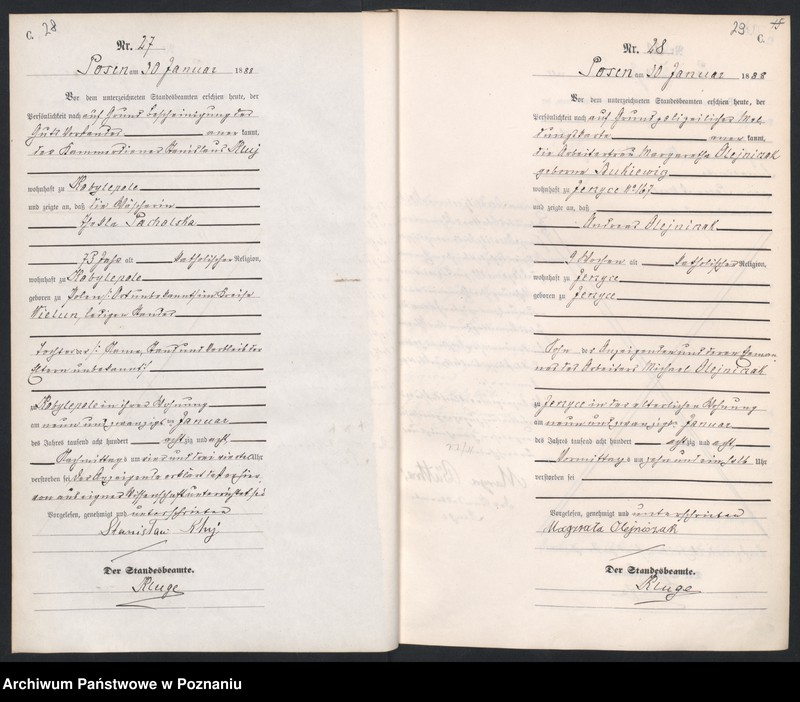 C. 28
Nr. 27
Posen am 30 Januar 1888
Vor dem unterzeichneten Standesbeamten erschien heute, der
Persönlichkeit nach auf Grund Bescheinigung des
Guts Vorstandes aner kannt,
der Kammerdiener Stanislaus Kluj
wohnhaft zu Kobylepole
und zeigte an, daß die Wäscherin
Thekla Pacholska
73 Jahr alt katholischer Religion,
wohnhaft zu Kobylepole
geboren zu Polen /: Ort unbekannt/ im Kreise
Wielun, ledigen Standes
Tochter des /: Name, Stand und Verbleib der
Eltern unbekannt/
zu Kobylepole in ihrer Wohnung
am neun und zwanzigsten Januar
des Jahres tausend acht hundert achtzig und acht
Nachmittags um vier und drei viertel Uhr
verstorben sei, der Anzeigende erklärt, daß er hier-
von aus eigner Wissenschaft unterrichtet sei
Vorgelesen, genehmigt und unterschrieben
Stanisław Kluj
Der Standesbeamte.
Kluge
29
C.
Nr. 28
Posen am 30 Januar 1888
Vor dem unterzeichneten Standesbeamten erschien heute, der
Persönlichkeit nach auf Grund polizeilicher Mel-
dungskarte aner kannt,
die Arbeiterfrau Margaretha Olejniczak
geborne
wohnhaft zu Jerzyce No 167
und zeigte an, daß
Andreas Olejniczak
9 Wochen alt katholischer Religion,
wohnhaft zu Jerzyce
geboren zu Jerzyce
Sohn der Anzeigenden und deren Eheman-
nes des Arbeiters Michael Olejniczak
zu Jerzyce in der elterlichen Wohnung
am neun und zwanzigsten Januar
des Jahres tausend acht hundert achtzig und acht
Vormittags um zehn und ein halb Uhr
verstorben sei
Vorgelesen, genehmigt und unterschrieben
Małgorzata Olejniczak
Der Standesbeamte.
Kluge
Archiwum Państwowe w Poznaniu